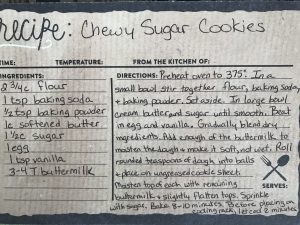 recipe: Chewy Sugar Cookies
TIME: TEMPERATURE: FROM THE KITCHEN OF:
INGREDIENTS:
2 3/4 c flour
1 tsp baking soda
1/2 tsp baking powder
1c softened butter
1 1/2c sugar
1 egg
1 tsp vanilla
3-4 T buttermilk
DIRECTIONS: Preheat oven to 375°. In a
small bowl stir together flour, baking soda
+ baking powder. Set aside. In large bowl
cream butter and sugar until smooth. Beat
in egg and vanilla. Gradually blend dry
ingredients. Add enough of the buttermilk to
moisten the dough + make it soft, not wet. Roll
rounded teaspoons of dough into balls
+ place on ungreased cookie sheet.
Moisten top of each with remaining
buttermilk + slightly flatten tops. Sprinkle
with sugar. Bake 8-10 minutes. Before placing on
cooling rack, let cool 2 minutes
SERVES: